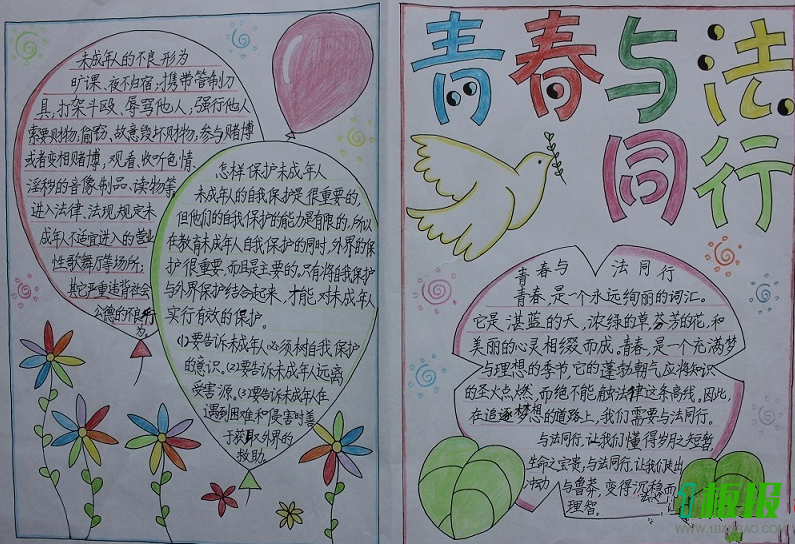 未成年人的不良形为
旷课、夜不归宿,携带管制刀
具,打架斗殴、辱骂他人,强行他人
索要财物,偷窃,故意毁坏财物,参与赌博
或者变相赌博,观看、收听色情、
淫秽的音像制品、读物等
进入法律、法规规定未
成年人不适宜进入的营业
性歌舞厅等场所;
其它严重违背社会
公德的不良行
为。
怎样保护未成年人
未成年人的自我保护是很重要的,
但他们的自我保护的能力是有限的,所以
在教育未成年人自我保护的同时,外界的保
护很重要,而且是主要的。只有将自我保护
与外界保护结合起来,才能对未成年人
实行有效的保护。
(1)要告诉未成年人必须树自我保护
的意识。(2)要告诉未成年人远离
受害源。(3)要告诉未成年人在
遇到困难和侵害时善
于获取外界的
救助。
青春与法
同行
青春与 法同行
青春,是一个永远绚丽的词汇。
它是湛蓝的天,浓绿的草芬芳的花,和
美丽的心灵相缀而成。青春,是一个充满梦
与理想的季节,它的蓬勃朝气应将知识
的圣火点燃,而绝不能触法律这条高线。因此,
在追逐梦想的道路上,我们需要与法同行。
与法同行,让我们懂得岁月之短暂,
生命之宝贵,与法同行,让我们走出
冲动与鲁莽,变得沉稳而
理智。
板报
WWW.IBANBAO.COM